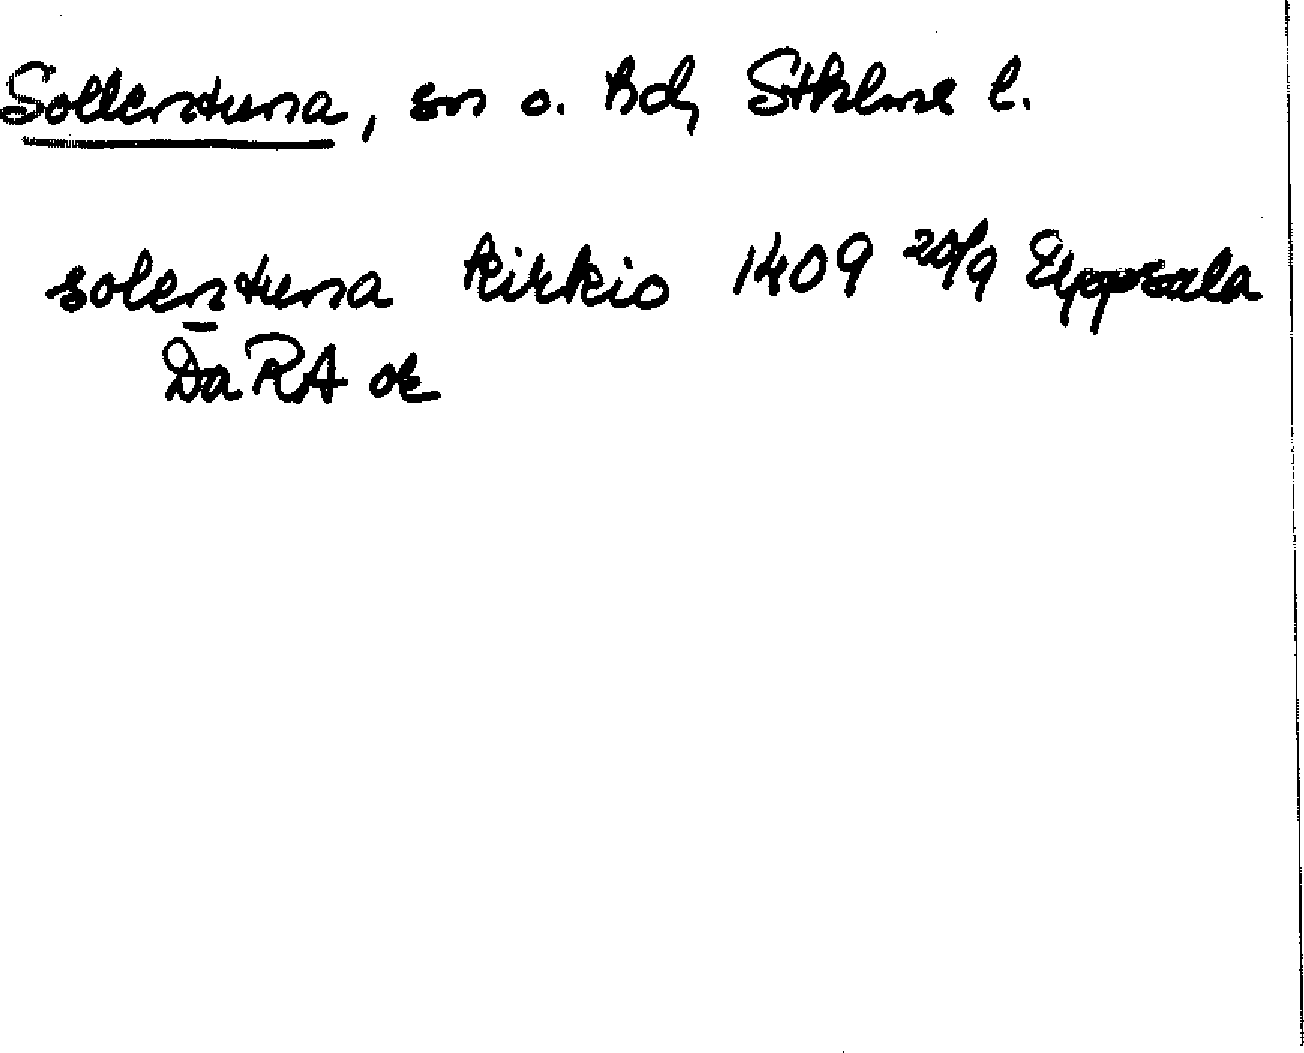 Sollentuna, sn o. hd, Sthlms l.
solentuna kirkio 1409 20/9 Uppsala
Da RA or